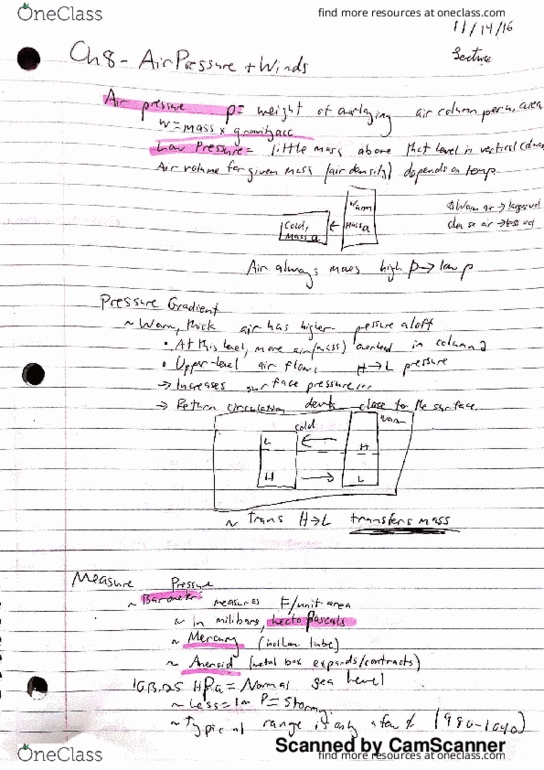 OneClass
find more resources at oneclass.com
11/14/16
Lecture
Ch8 - Air Pressure + Winds
Air pressure p= weight of overlaying air column per u. area
w = mass x gravity acc
Low Pressure = little mass above that level in vertical column
Air volume for given mass (air density) depends on temp
Warm
Mass a
Cold,
Mass a
Warm air → large vol
dense air → less vol
Air always moves high p → low p
Pressure Gradient
~ Warm, thick air has higher pressure aloft
• At this level, more air (mass) overhead in column 2
• Upper-level air flows H → L pressure
→ Increases surface pressure...
→ Return circulation close to the surface.
cold
warm
L ← H
H → L
~ Trans H → L transfers mass
Measure Pressure
~ Barometer measures F/unit area
~ In milibars, hecto pascals
~ Mercury (hollow tube)
~ Aneroid (metal box expands/contracts)
1013.25 HPa = Normal sea level
~ Less = low P = Stormy
~ Typical range is only a few % (980-1040)
Scanned by CamScanner
OneClass
find more resources at oneclass.com